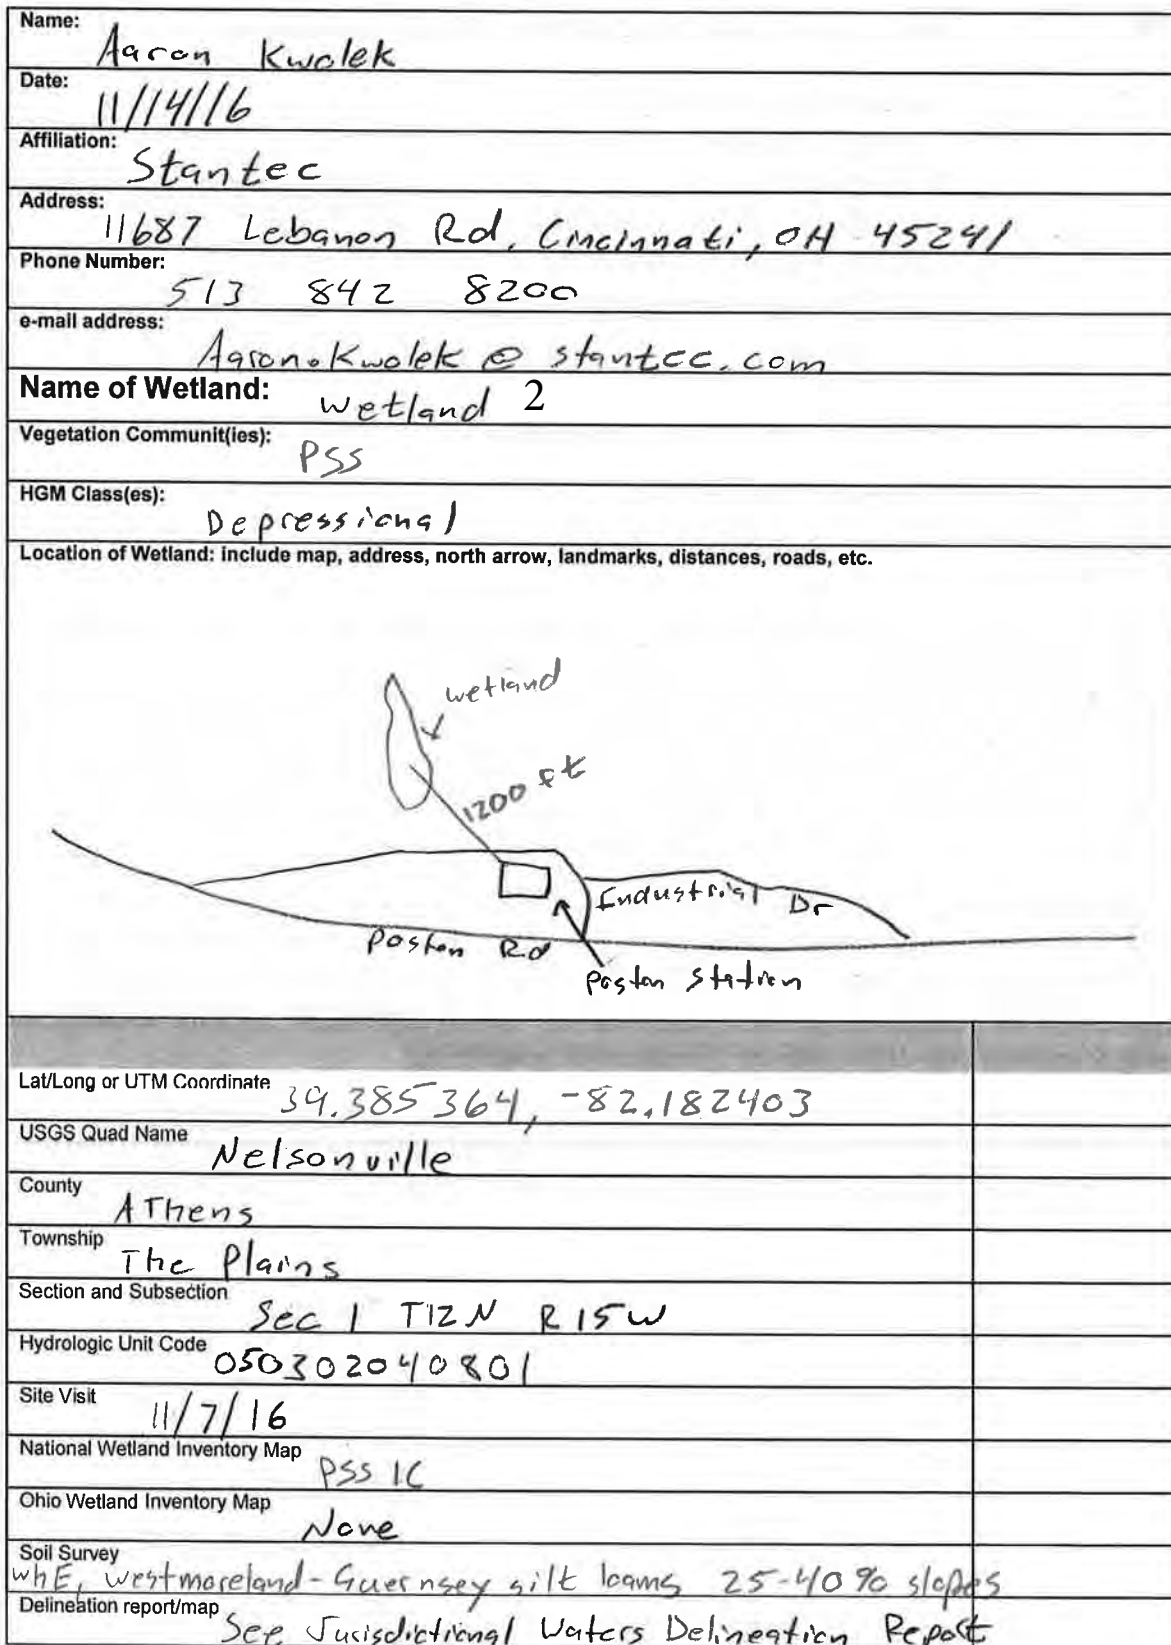 Name:
Aaron Kwolek
Date:
11/14/16
Affiliation:
Stantec
Address:
11687 Lebanon Rd, Cincinnati, OH 45241
Phone Number:
513 842 8200
e-mail address:
Aaron.Kwolek @ stantec.com
Name of Wetland:
Wetland 2
Vegetation Communit(ies):
PSS
HGM Class(es):
Depressional
Location of Wetland: include map, address, north arrow, landmarks, distances, roads, etc.
wetland
1200 ft
Industrial Dr
Poston Rd
Poston Station
Lat/Long or UTM Coordinate
39.385364, -82.182403
USGS Quad Name
Nelsonville
County
Athens
Township
The Plains
Section and Subsection
Sec 1 T12N R15W
Hydrologic Unit Code
050302040801
Site Visit
11/7/16
National Wetland Inventory Map
PSS 1C
Ohio Wetland Inventory Map
None
Soil Survey
WhE, Westmoreland-Guernsey silt loams 25-40% slopes
Delineation report/map
See Jurisdictional Waters Delineation Report